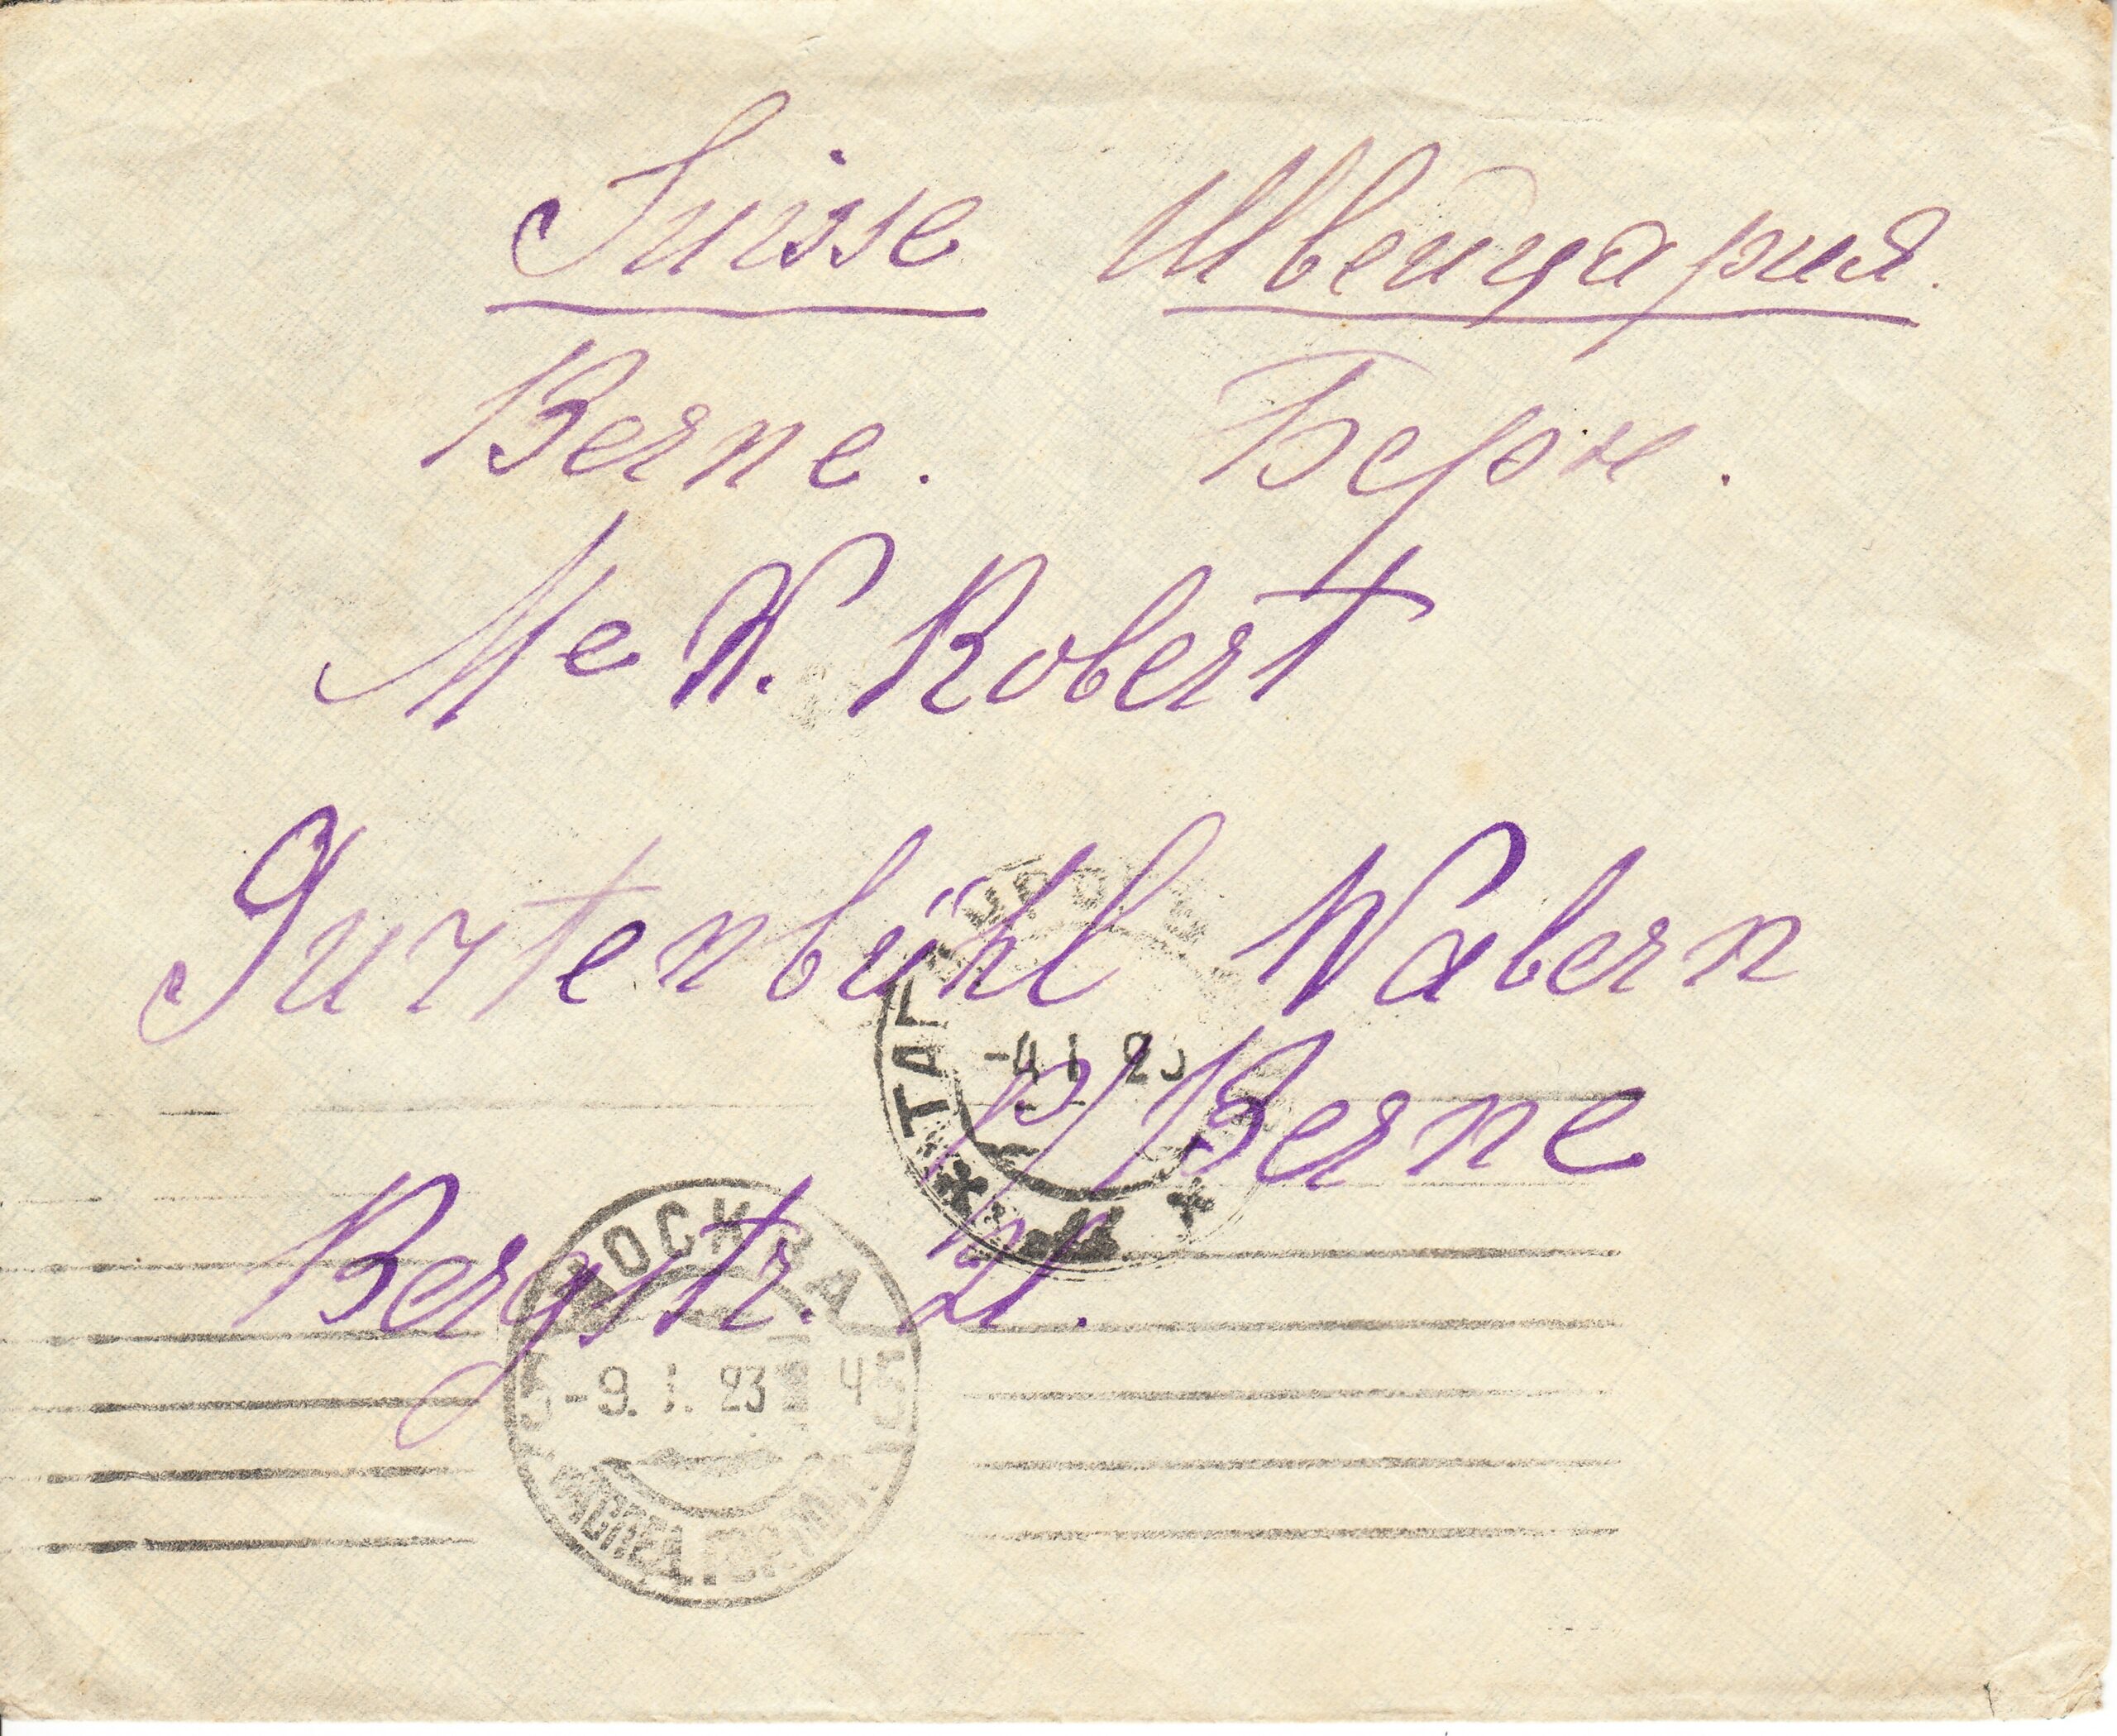 Suisse Швейцария.
Berne. Берн.
Me N. Robert
Gurtenbühl Wabern
Berne
Bergstr. 21.
ТАГ
-4 1 23
МОСКВА
-9. 1. 23